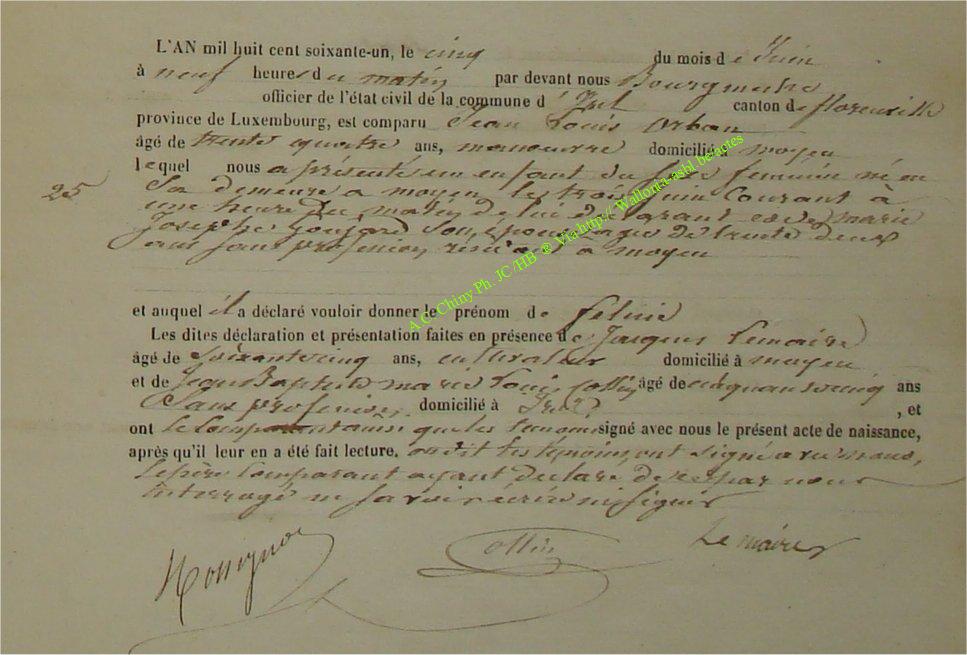 L'AN mil huit cent soixante-un, le cinq du mois d e Juin
à neuf heures d u matin par devant nous Bourgmestre
officier de l'état civil de la commune d' Izel canton de florenville
province de Luxembourg, est comparu Jean Louis Orban
âgé de trente quatre ans, manoeuvre domicilié à moyen
lequel nous a présenté un enfant du sexe féminin né en
25 Sa demeure a moyen, le trois Juin Courant à
une heure du matin de lui déclarant et de marie
Josephe Goujard Son épouse agée de trente deux
ans sans profession, résidant à moyen
et auquel il a déclaré vouloir donner le prénom de felicie
Les dites déclaration et présentation faites en présence de Jacques Lemaire
âgé de soixante cinq ans, cultivateur domicilié à moyen
et de Jean Baptiste marie Louis Collin âgé de cinquante cinq ans
Sans profession, domicilié à Izel, et
ont le Comparant ainsi que les témoins signé avec nous le présent acte de naissance,
après qu'il leur en a été fait lecture. les témoins ont signé avec nous,
Le père Comparant ayant déclaré de ce par nous
interrogé ne savoir écrire ni signer
Collin Lemaire
A.G. Chiny Ph. JC /HB ® Via http:// Wallonia-asbl.be/actes